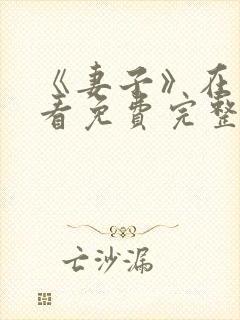 《妻子》在
看免费完整
亡沙漏